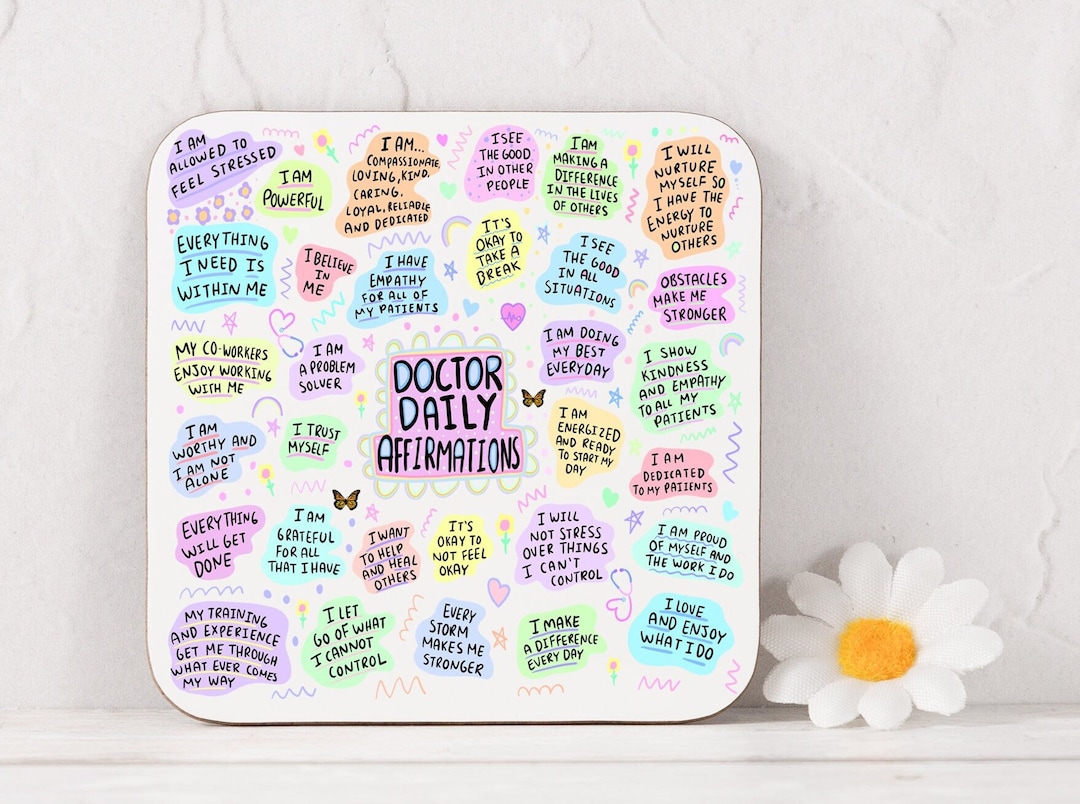 I AM
ALLOWED TO
FEEL STRESSED
I AM
POWERFUL
I AM...
COMPASSIONATE,
LOVING, KIND,
CARING.
LOYAL, RELIABLE
AND DEDICATED
I SEE
THE GOOD
IN OTHER
PEOPLE
I AM
MAKING A
DIFFERENCE
IN THE LIVES
OF OTHERS
I WILL
NURTURE
MYSELF SO
I HAVE THE
ENERGY TO
NURTURE
OTHERS
EVERYTHING
I NEED IS
WITHIN ME
I BELIEVE
IN
ME
I HAVE
EMPATHY
FOR ALL OF
MY PATIENTS
IT'S
OKAY TO
TAKE A
BREAK
I SEE
THE GOOD
IN ALL
SITUATIONS
OBSTACLES
MAKE ME
STRONGER
MY CO-WORKERS
ENJOY WORKING
WITH ME
I AM
A PROBLEM
SOLVER
DOCTOR
DAILY
AFFIRMATIONS
I AM DOING
MY BEST
EVERYDAY
I SHOW
KINDNESS
AND EMPATHY
TO ALL MY
PATIENTS
I AM
WORTHY AND
I AM NOT
ALONE
I TRUST
MYSELF
I AM
ENERGIZED
AND READY
TO START MY
DAY
I AM
DEDICATED
TO MY PATIENTS
EVERYTHING
WILL GET
DONE
I AM
GRATEFUL
FOR ALL
THAT I HAVE
I WANT
TO HELP
AND HEAL
OTHERS
IT'S
OKAY TO
NOT FEEL
OKAY
I WILL
NOT STRESS
OVER THINGS
I CAN'T
CONTROL
I AM PROUD
OF MYSELF AND
THE WORK I DO
MY TRAINING
AND EXPERIENCE
GET ME THROUGH
WHAT EVER COMES
MY WAY
I LET
GO OF WHAT
I CANNOT
CONTROL
EVERY
STORM
MAKES ME
STRONGER
I MAKE
A DIFFERENCE
EVERY DAY
I LOVE
AND ENJOY
WHAT I DO